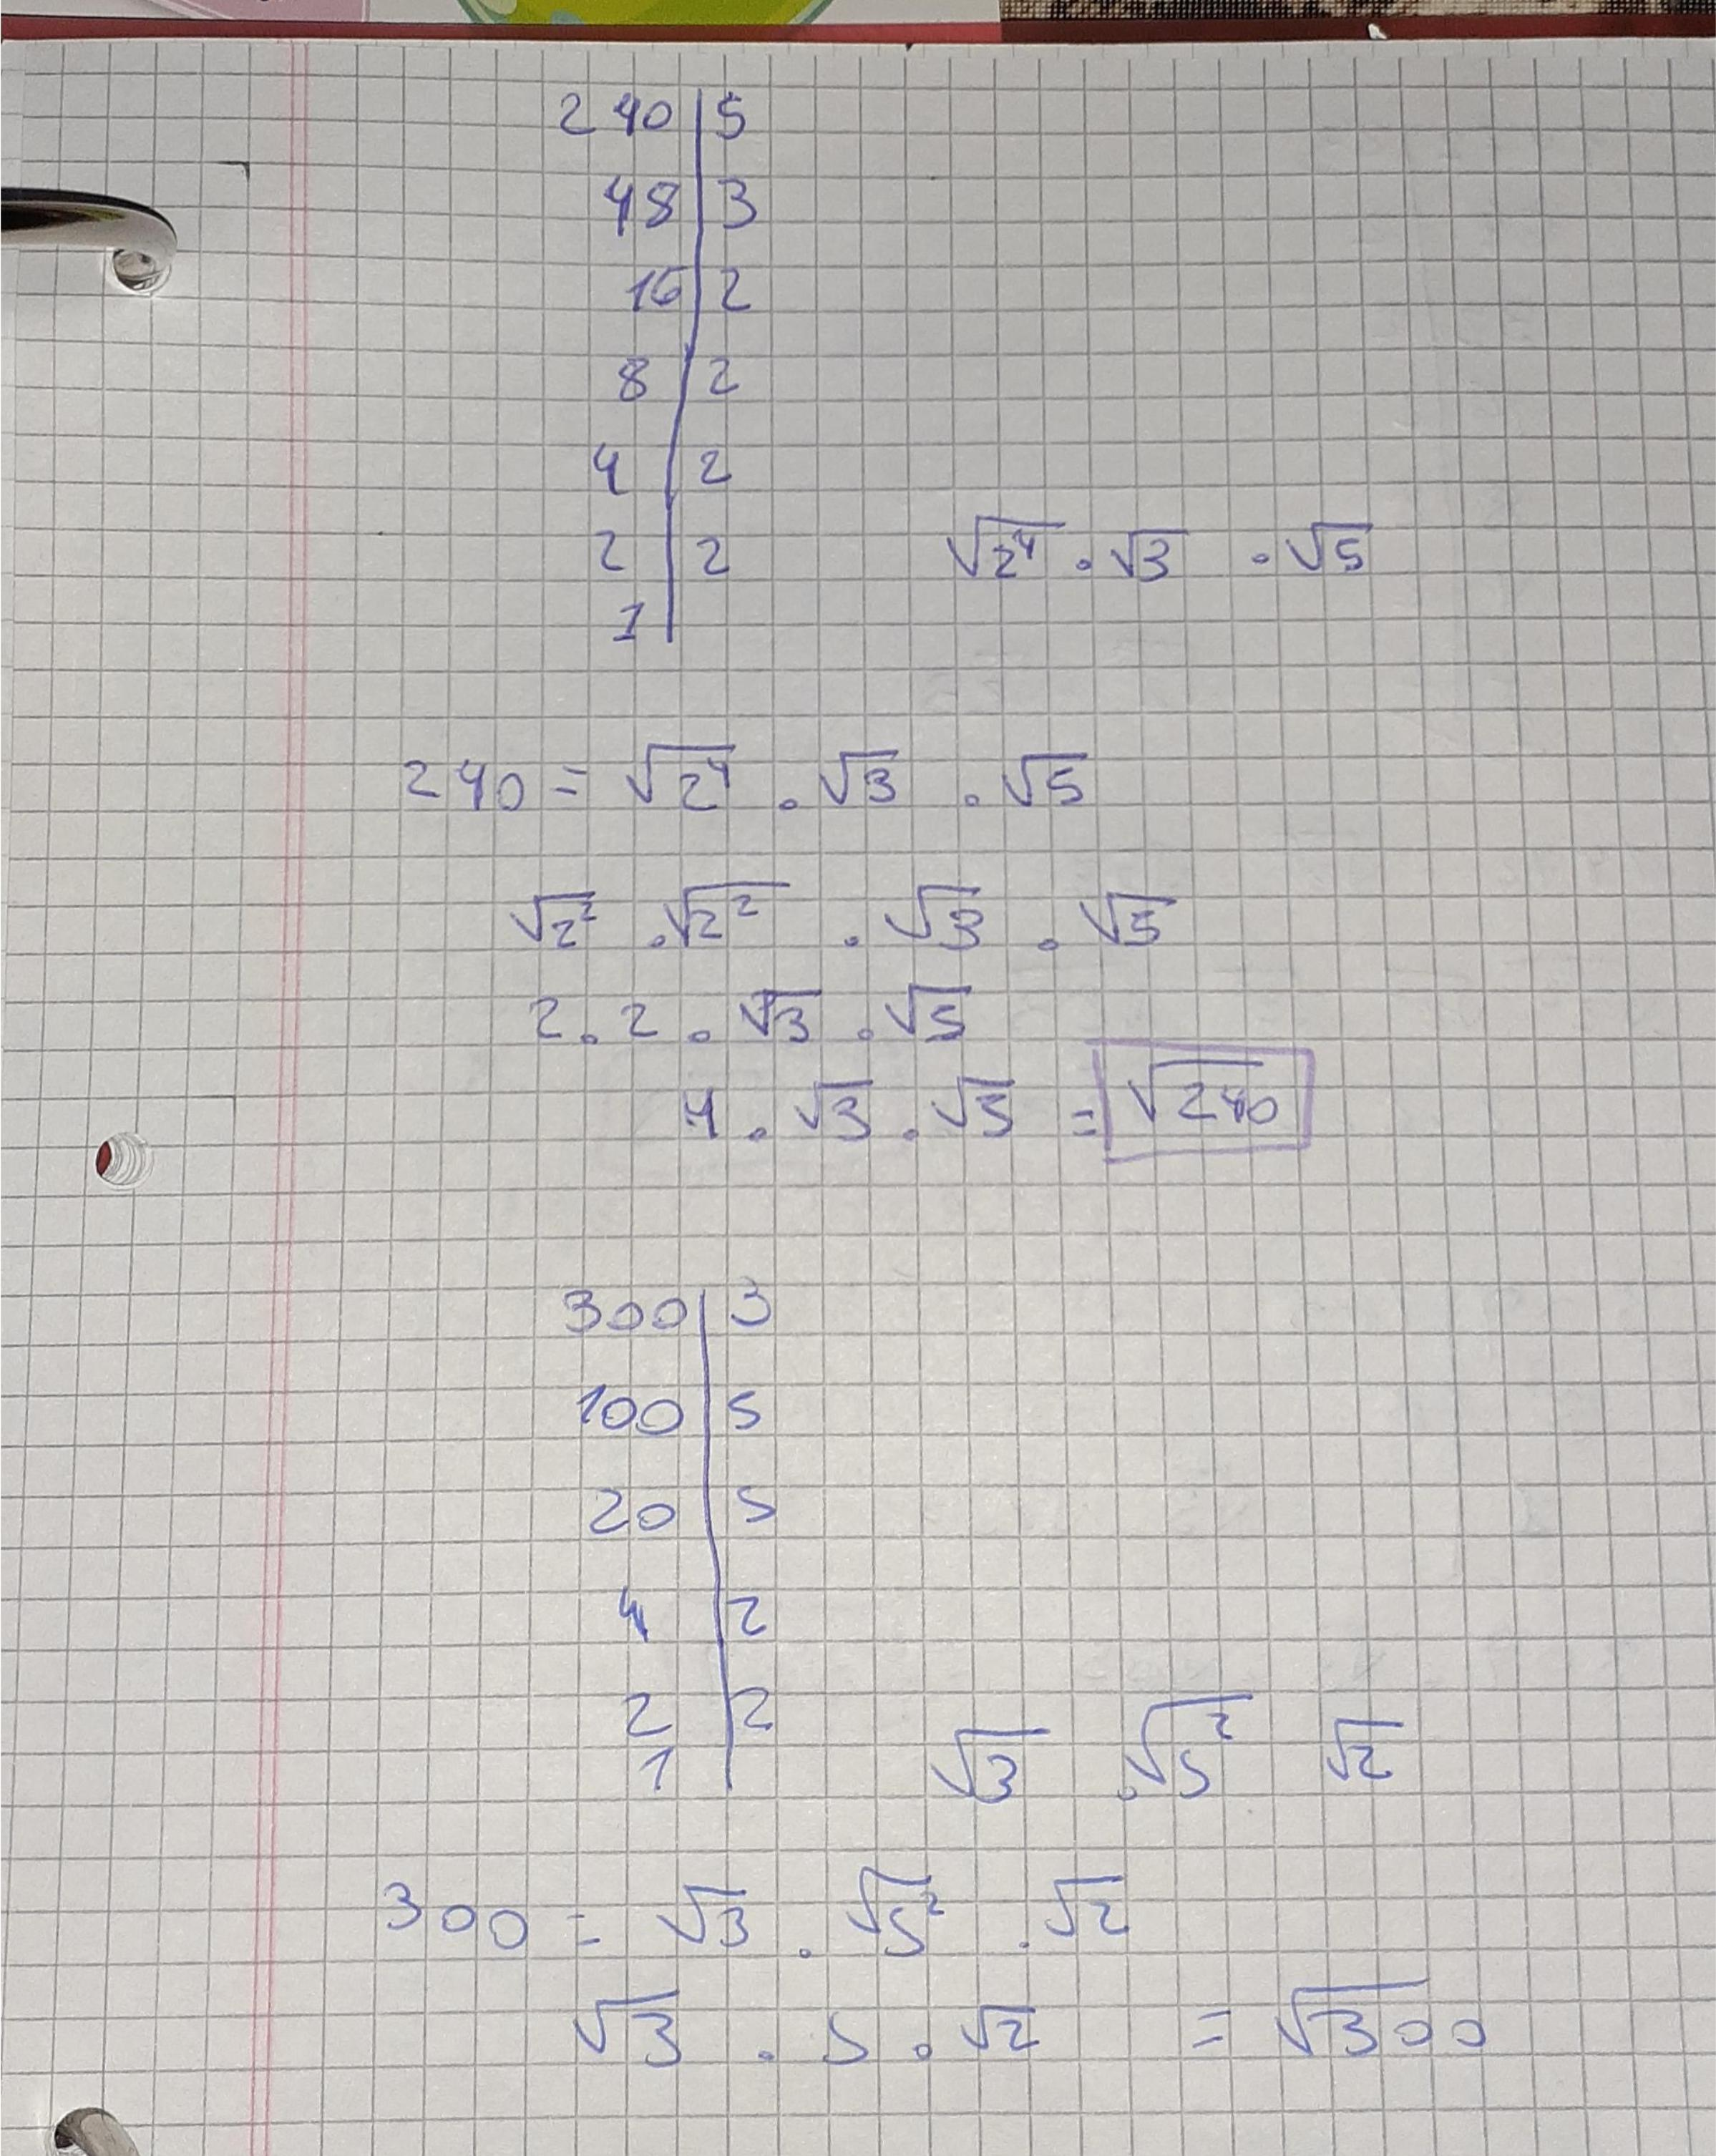 240 | 5
48 | 3
16 | 2
8 | 2
4 | 2
2 | 2 √2⁴ · √3 · √5
1 |
240 = √2⁴ · √3 · √5
√2² · √2² · √3 · √5
2 · 2 · √3 · √5
4 · √3 · √5 = √240
300 | 3
100 | 5
20 | 5
4 | 2
2 | 2
1 | √3 · √5² √2
300 = √3 · √5² · √2
√3 · 5 · √2 = √300